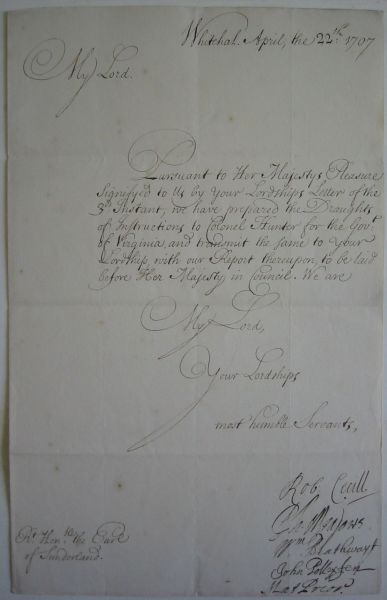 Whitehal. April, the 22th. 1707
My Lord.
Pursuant to Her Majestys Pleasure
signifyed to Us by Your Lordships Letter of the
3d Instant, we have prepared the Draughts
of Instructions to Colonel Hunter for the Govt.
of Virginia, and transmit the same to Your
Lordship, with our Report thereupon, to be laid
before Her Majesty in Council. We are
My Lord,
Your Lordships
most humble Servants,
Rob Cecill
Wm Blathwayt
John Pollexfen
Mat Prior.
Rt. Honble. the Earl
of Sunderland.